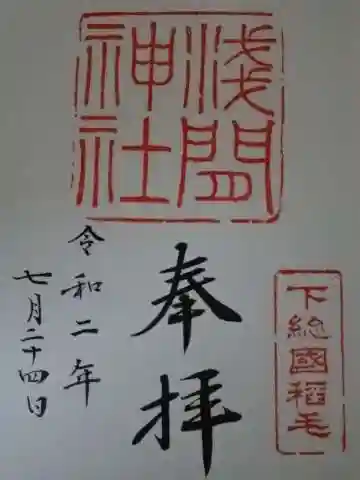 淺間
神社
下総國稻毛
奉拝
令和二年
七月二十四日